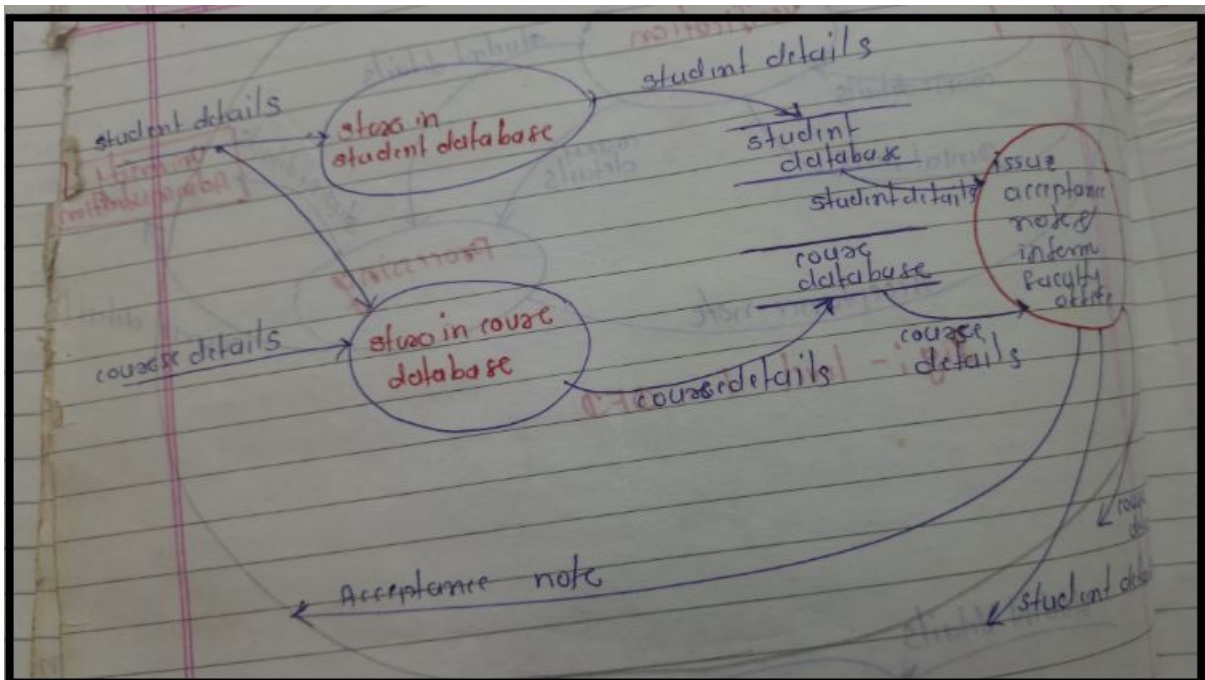 student details
store in
student database
student details
student
database
student details
issue
acceptance
note &
inform
faculty
office
course details
store in course
database
course
database
course details
course
details
Acceptance note
student det